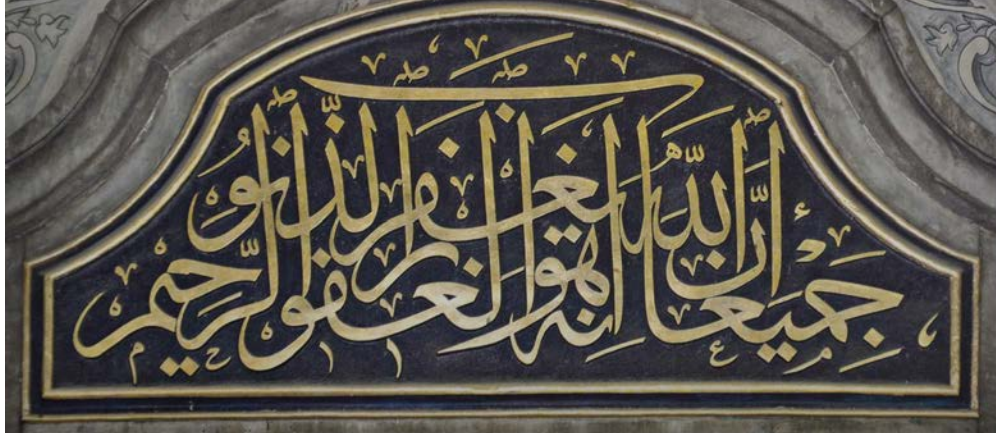 إن الله يغفر الذنوب
جميعا إنه هو الغفور الرحيم